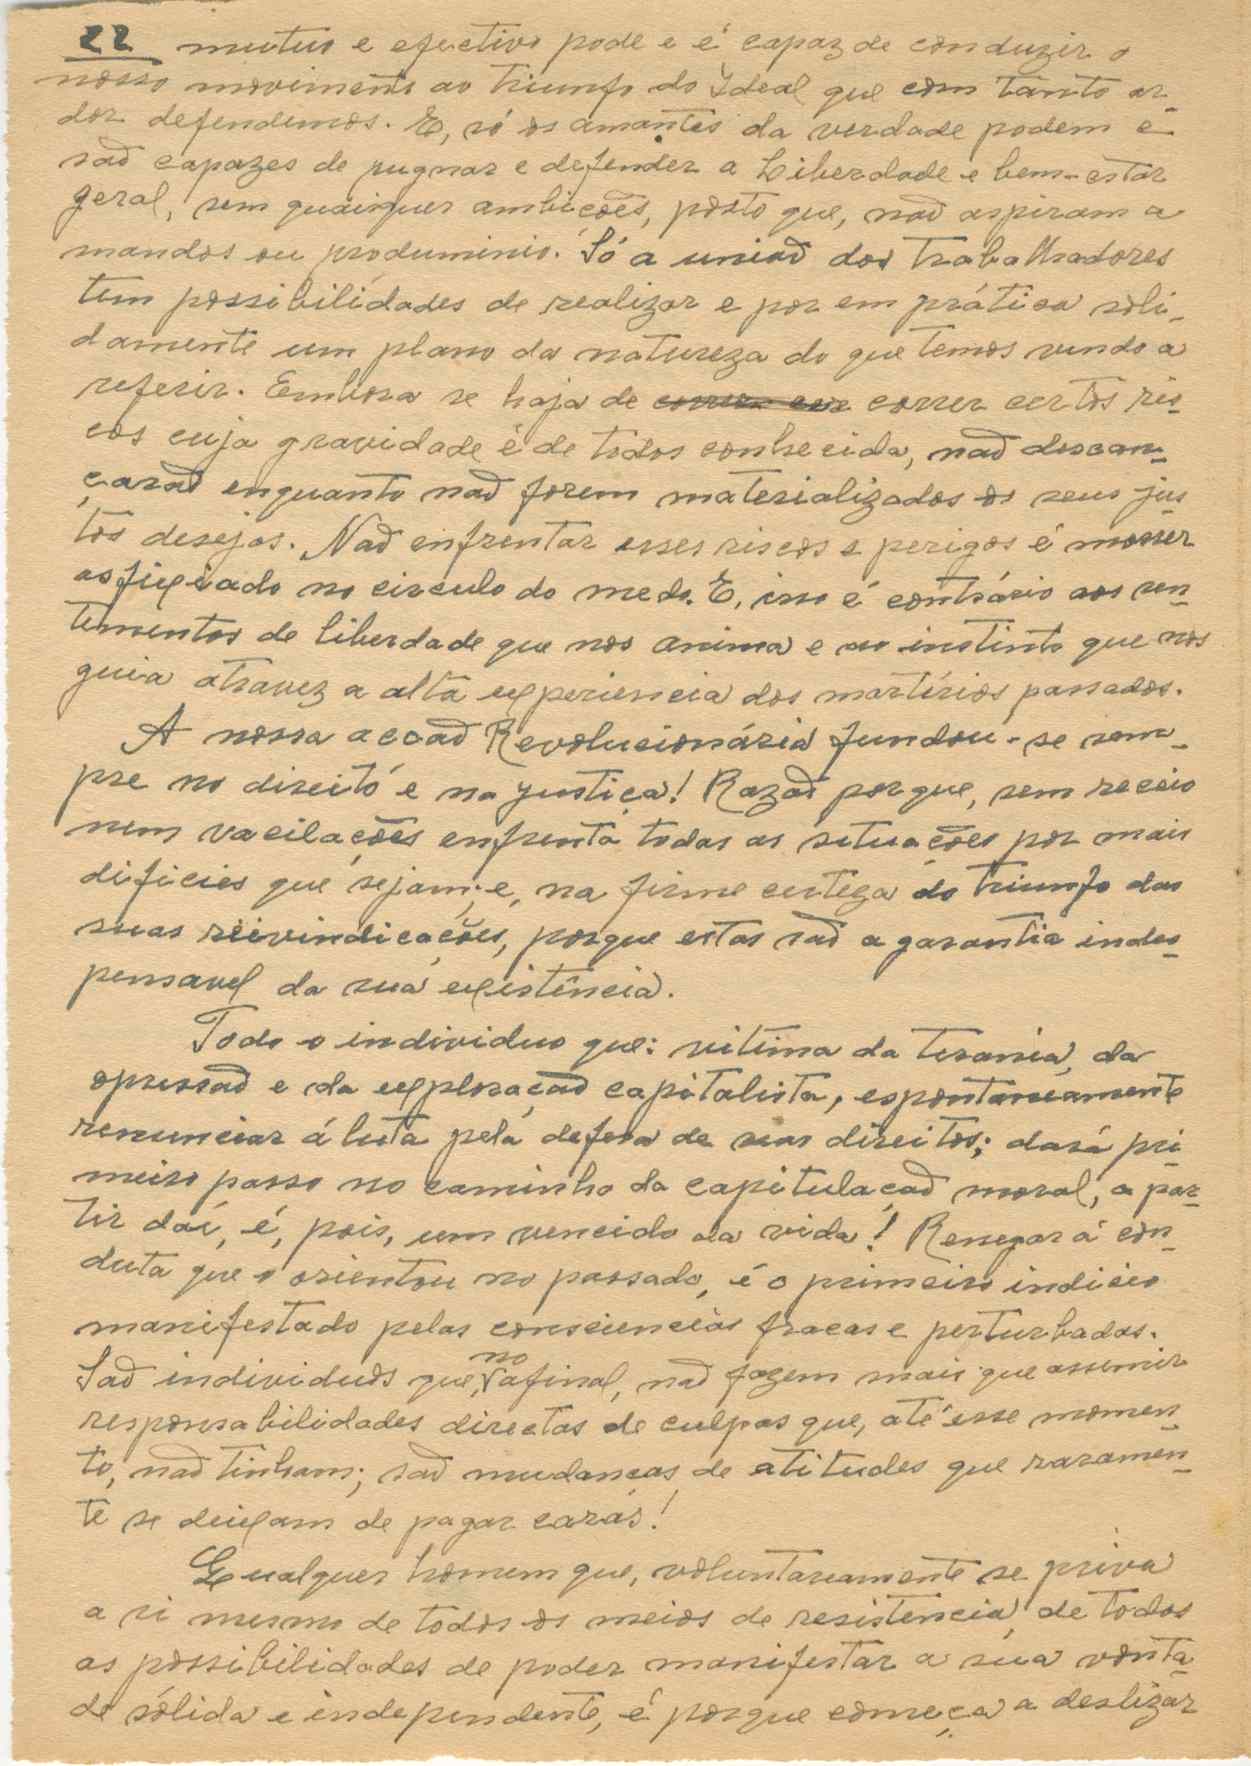 22 mutuo e efectivo pode e é capaz de conduzir o
nosso movimento ao triunfo do Ideal que com tanto ar-
dor defendemos. E, só os amantes da verdade podem e
saõ capazes de pugnar e defender a Liberdade e bem-estar
geral, sem quaisquer ambições, posto que, naõ aspiram a
mandos ou produminio. Só a uniaõ dos trabalhadores
tem possibilidades de realizar e por em prática soli-
damente um plano da natureza do que temos vindo a
referir. Embora se haja de correr certos ris-
cos cuja gravidade é de todos conhecida, naõ descan-
çaraõ enquanto naõ forem materializados os seus jus
tos desejos. Naõ enfrentar esses riscos e perigos é morrer
asfixiado no circulo do medo. E, isso é contrário aos sen-
timentos de liberdade que nos anima e ao instinto que nos
guia atravez a alta experiencia dos martírios passados.
A nossa acçaõ Revolucionária fundou-se sem-
pre no direito e na justiça! Razaõ porque, sem receio
nem vacilações enfrenta todas as situações por mais
dificies que sejam; e, na firme certeza do triunfo das
suas reivindicações, porque estas saõ a garantia indes-
pensavel da sua existência.
Todo o individuo que: vitima da tirania, da
opressaõ e da exploraçaõ capitalista, espontaneamente
renunciar á luta pela defesa de seus direitos; dará pri
meiro passo no caminho da capitulaçaõ moral, a par-
tir daí, é, pois, um vencido da vida! Renegar á con-
duta que o orientou no passado, é o primeiro indicio
manifestado pelas consciencias fracas e perturbadas.
Saõ individuos que, no afinal, naõ fazem mais que assumir
responsabilidades directas de culpas que, até esse momen-
to, naõ tinham; saõ mudanças de atitudes que raramen-
te se deixam de pagar caras!
Qualquer homem que, voluntareamente se priva
a si mesmo de todos os meios de resistencia, de todas
as possibilidades de poder manifestar a sua vonta-
de sólida e independente, é porque começa a deslizar